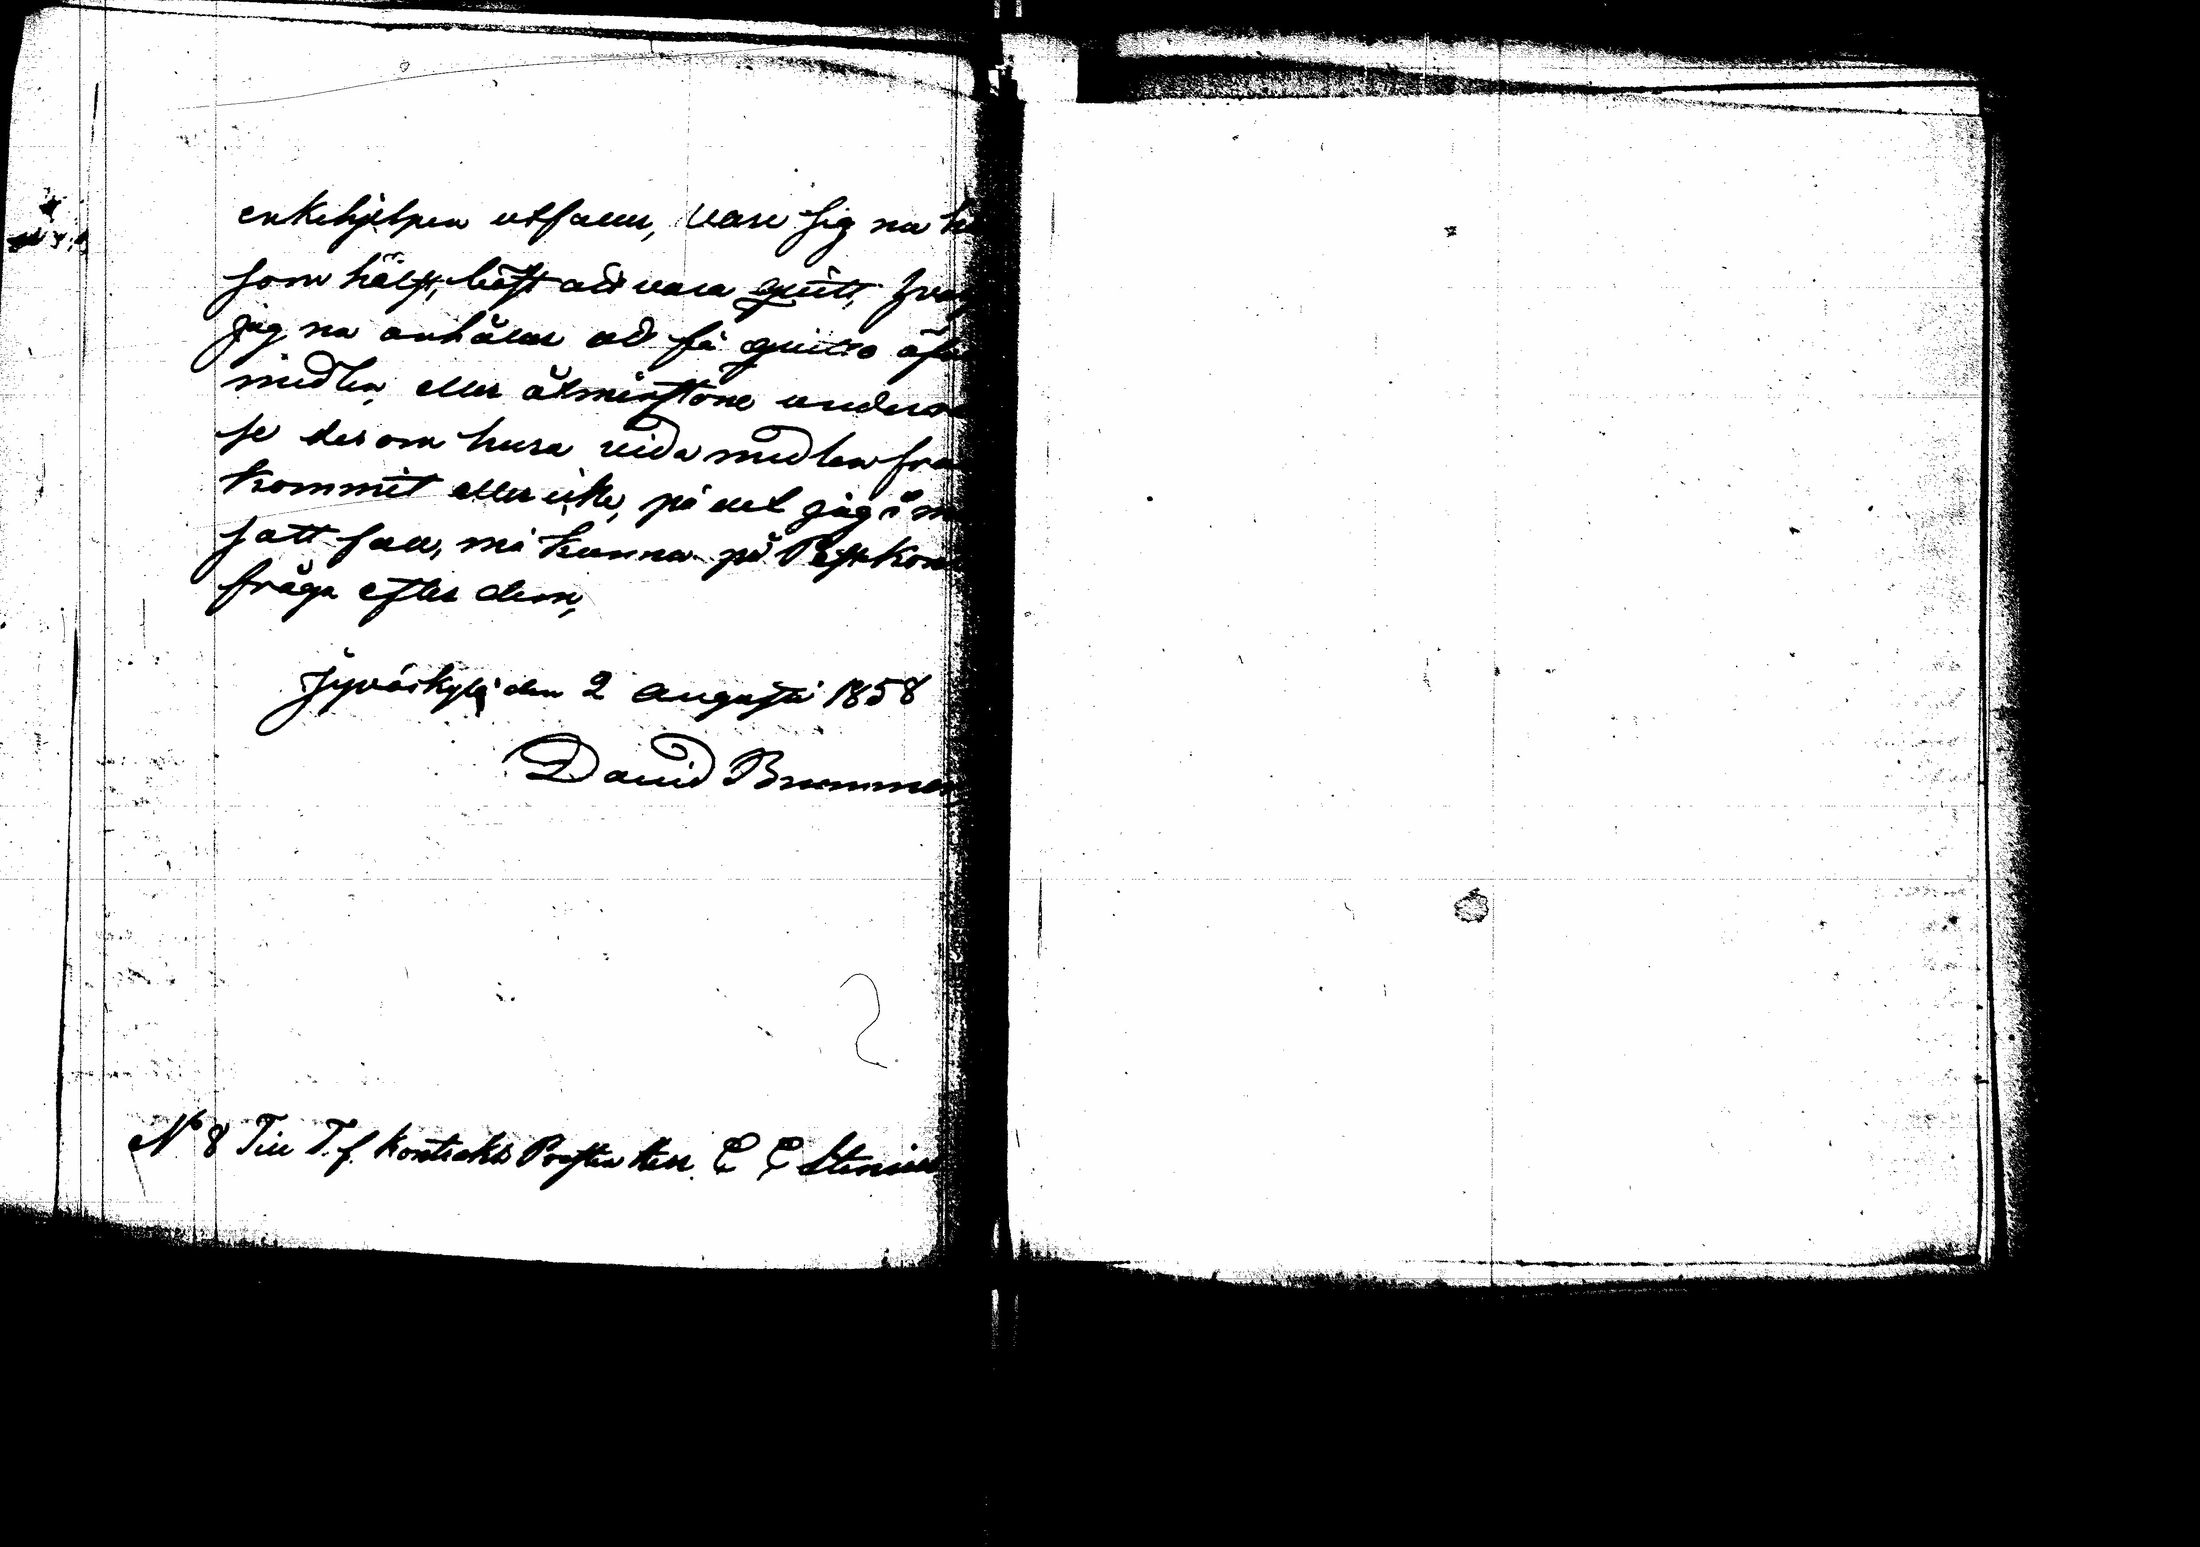 enkehjelpen utfaller, vare sig nu hu
som hälst, bäst att vara quitt, hvar
jag nu anhåller att få quitto öfver
medlen, eller åtminstone underrä
se derom huru vida medlen fram
kommit eller icke, på det jag i mo
satt fall, må kunna på Postkon
fråga efter dem,
Jyväskylä den 2 augusti 1858
David Brummer
No 8 Till T. f. Kontrakts Prosten Herr. C C Stenius